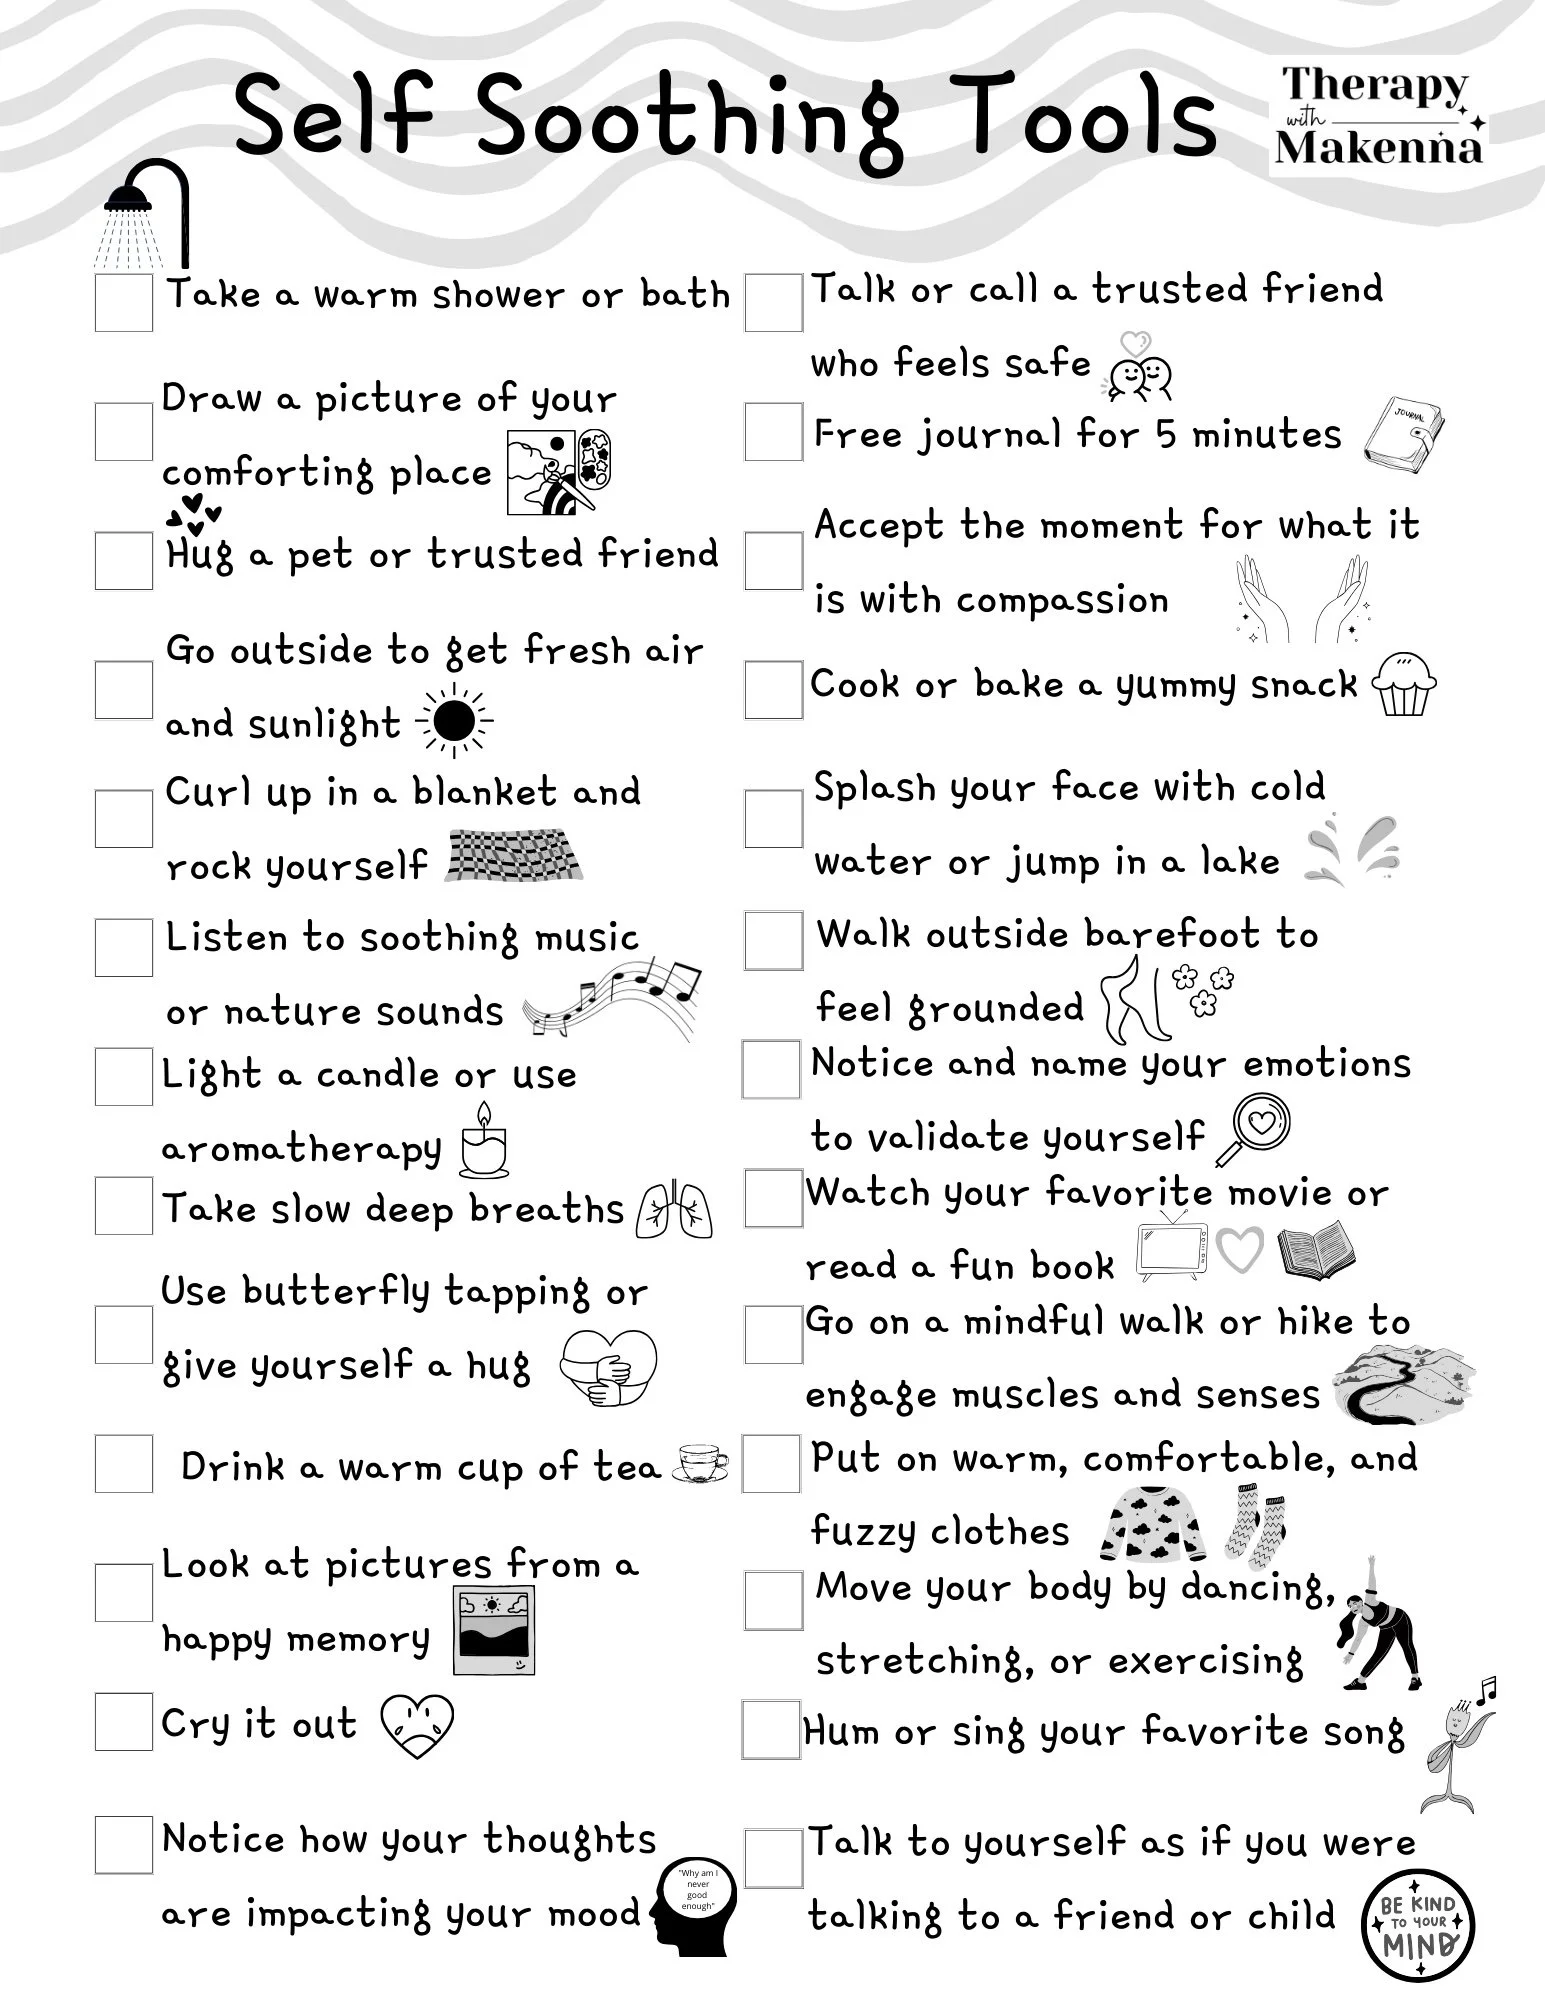 Self Soothing Tools
Therapy
with
Makenna
Take a warm shower or bath
Draw a picture of your
comforting place
Hug a pet or trusted friend
Go outside to get fresh air
and sunlight
Curl up in a blanket and
rock yourself
Listen to soothing music
or nature sounds
Light a candle or use
aromatherapy
Take slow deep breaths
Use butterfly tapping or
give yourself a hug
Drink a warm cup of tea
Look at pictures from a
happy memory
Cry it out
Notice how your thoughts
are impacting your mood
"Why am I
never
good
enough"
Talk or call a trusted friend
who feels safe
Free journal for 5 minutes
JOURNAL
Accept the moment for what it
is with compassion
Cook or bake a yummy snack
Splash your face with cold
water or jump in a lake
Walk outside barefoot to
feel grounded
Notice and name your emotions
to validate yourself
Watch your favorite movie or
read a fun book
Go on a mindful walk or hike to
engage muscles and senses
Put on warm, comfortable, and
fuzzy clothes
Move your body by dancing,
stretching, or exercising
Hum or sing your favorite song
Talk to yourself as if you were
talking to a friend or child
BE KIND
TO YOUR
MIND